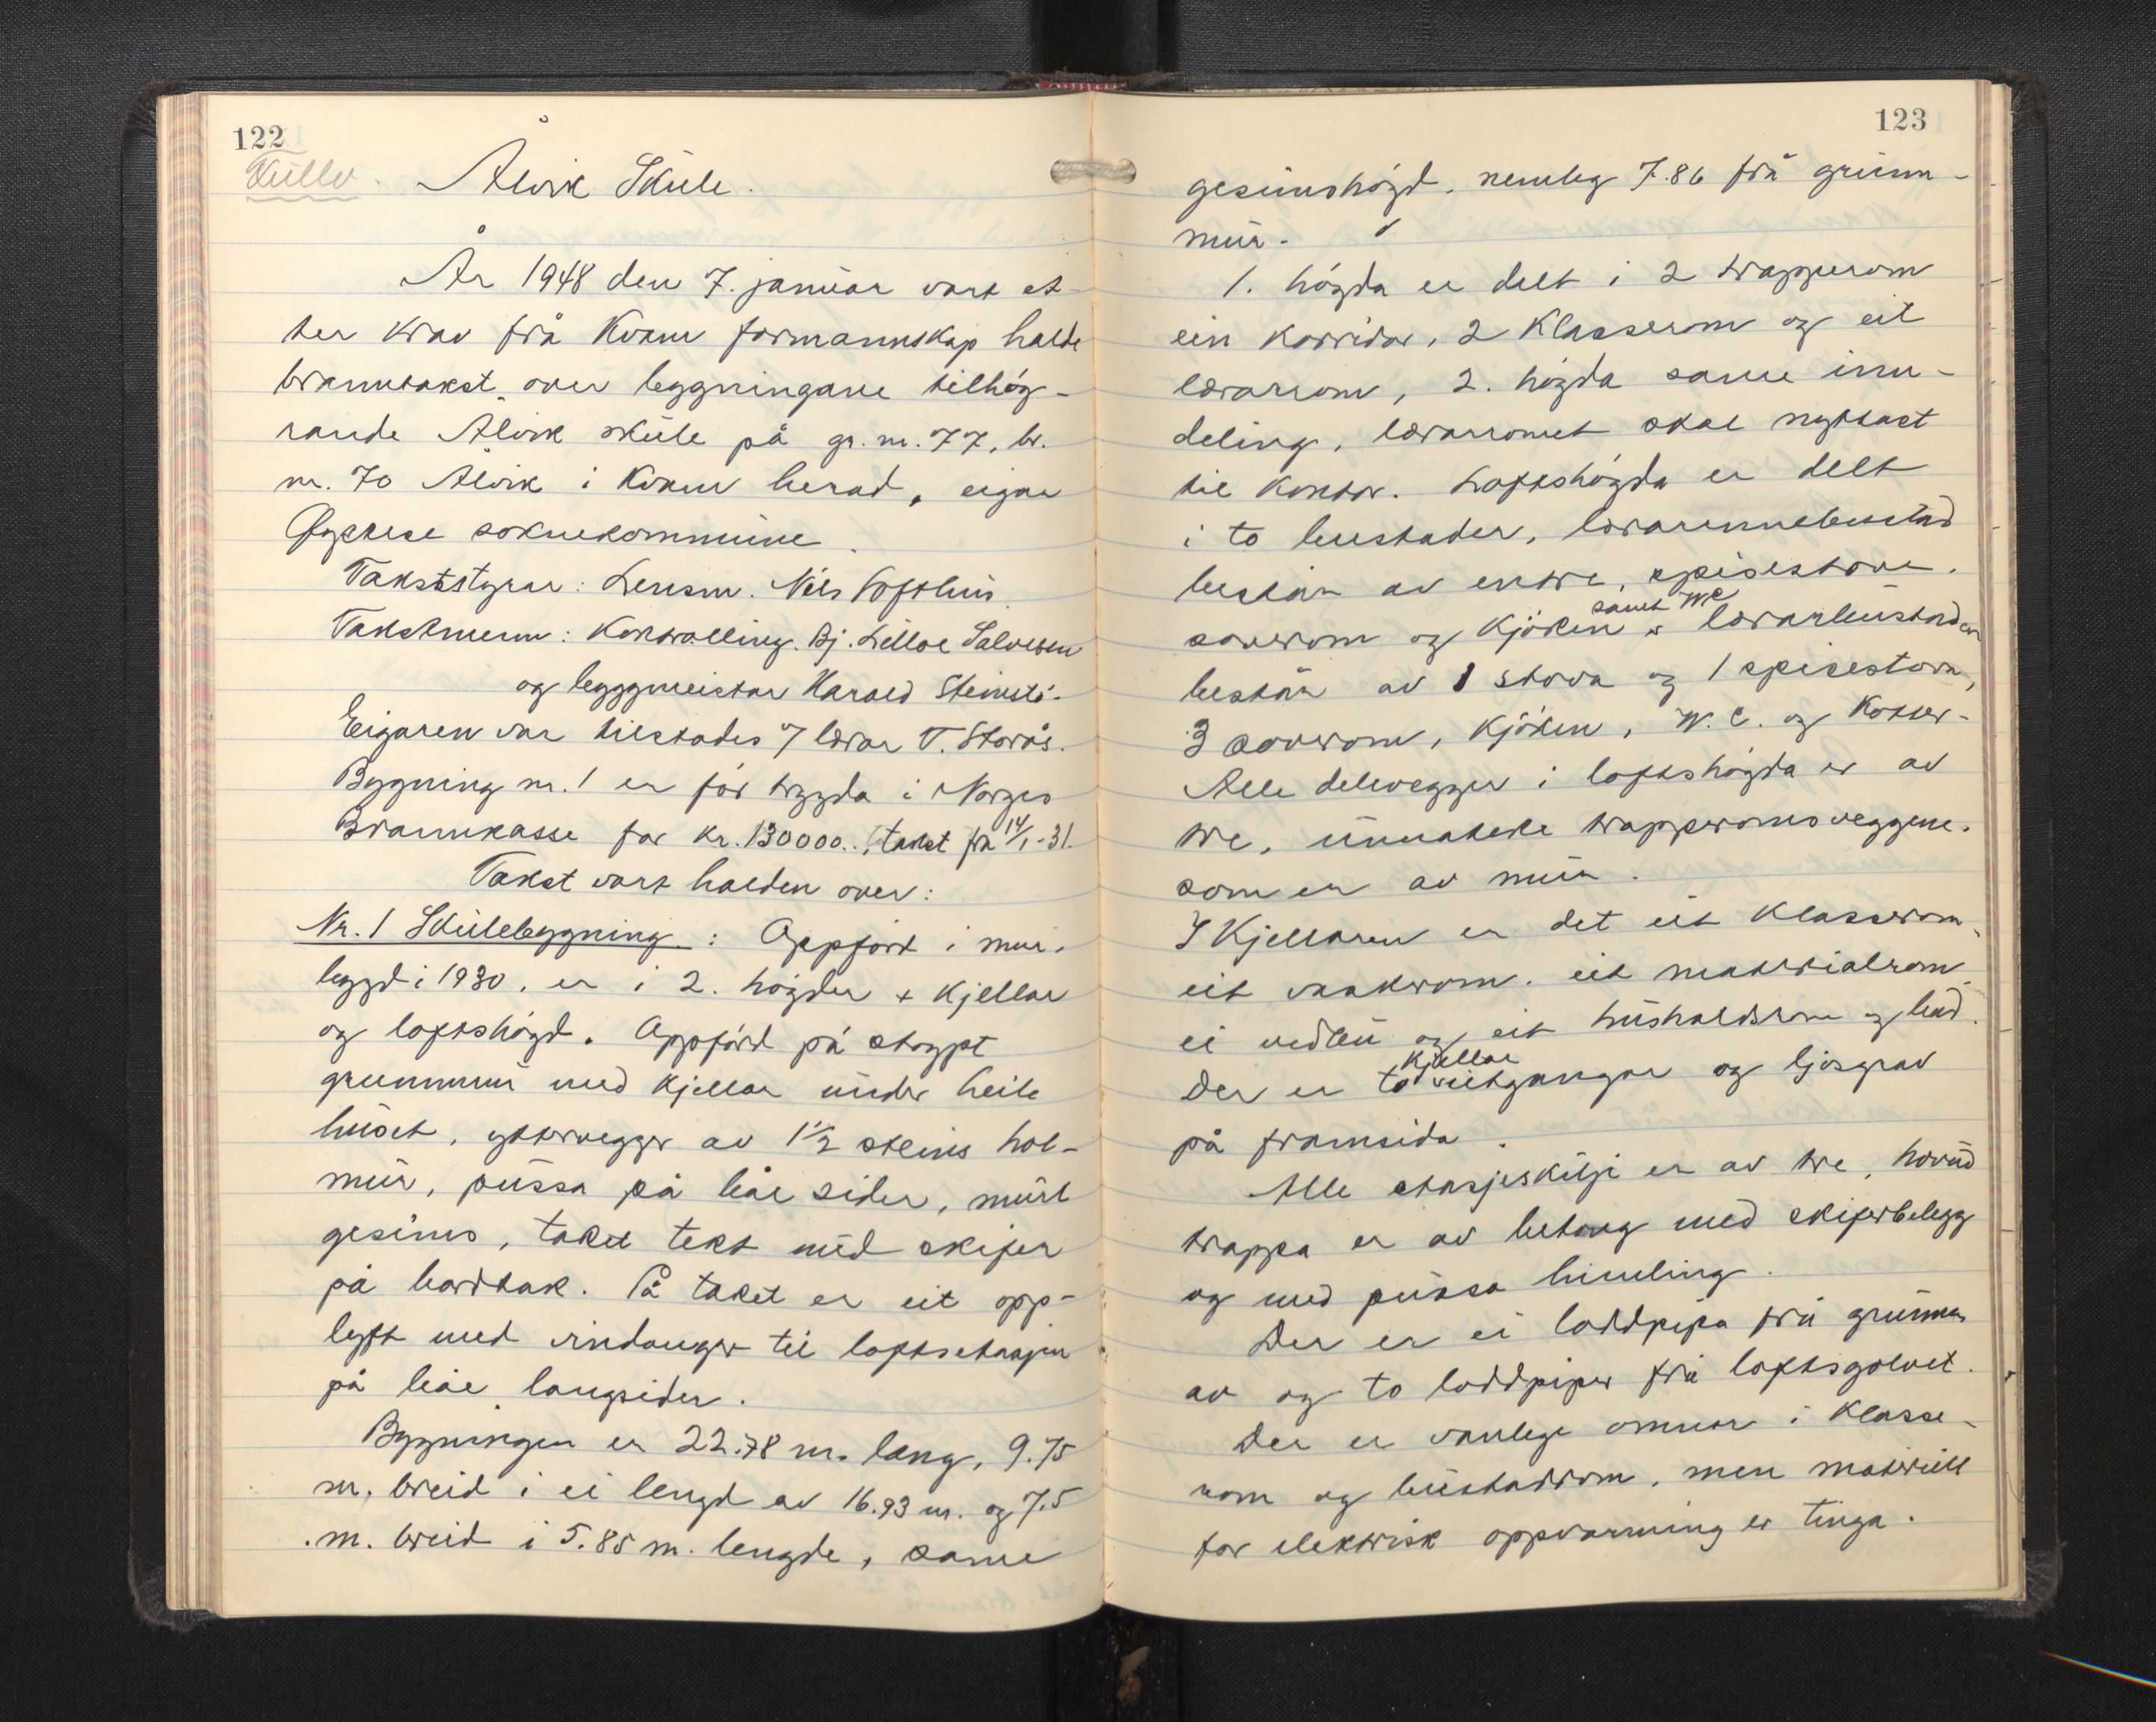 122
Ålvik Skule.
År 1948 den 7. januar vart et-
ter krav frå Kvam formannskap halde
branntakst over byggningane tilhøy-
rande Ålvik skule på gr. nr. 77, br.
nr. 70 Ålvik i Kvam herad, eigar
Øystese soknekommune.
Takststyrar: Lensm. Nils Tofthus.
Takstmenn: Kontrolling. Bj. Lilloe Salvesen
og byggmeistar Harald Steinstø.
Eigaren var tilstades v/ lærar T. Storås.
Bygning nr. 1 er før trygda i Norges
Brannkasse for kr. 130000.., takst frå 14/1-31.
Takst vart halden over:
Nr. 1 Skulebyggning: Oppført i mur.
byggd i 1930, er i 2. høgder + kjellar
og loftshøgd. Oppførd på støypt
grunnmur med kjellar under heile
huset, yttervegger av 1½ steins hol-
mur, pussa på båe sider, murt
gesims, taket tekt med skifer
på bordtak. På taket er eit opp-
lyft med vindauger til loftsetasjen
på båe langsider.
Bygningen er 22.78 m. lang, 9.75
m. breid i ei lengd av 16.93 m. og 7.5
m. breid i 5.85 m. lengde, same
123
gesimshøgd, nemleg 7.86 frå grunn-
mur.
1. høgda er delt i 2 trapperom
ein korridor, 2 klasserom og eit
lærarrom, 2. høgda same inn-
deling, lærarromet skal nyttast
til kontor. Loftshøgda er delt
i to bustader, lærarinnebustad
består av entre, spisestove.
soverom og kjøken samt WC lærarbustaden
består av 1 stova og 1 spisestova,
3 soverom, kjøken, W.C. og kott.
Alle delevegger i loftshøgda er av
tre, unnateke trapperomsveggene.
som er av mur.
I kjellaren er det eit klasserom,
eit vaskerom. eit materialrom
ei vedbu og eit husholdsrom og bad.
Der er to kjellar uitgangar og ljosgrav
på framsida.
Alle etasjeskilje er av tre, hovud
trappa er av betong med skiferbelegg
og med pussa himling.
Der er ei loddpipa frå grunnen
av og to loddpiper frå loftsgolvet.
Der er vanlege omnar i klasse-
rom og bustadrom, men materiell
for elektrisk oppvarming er tinga.